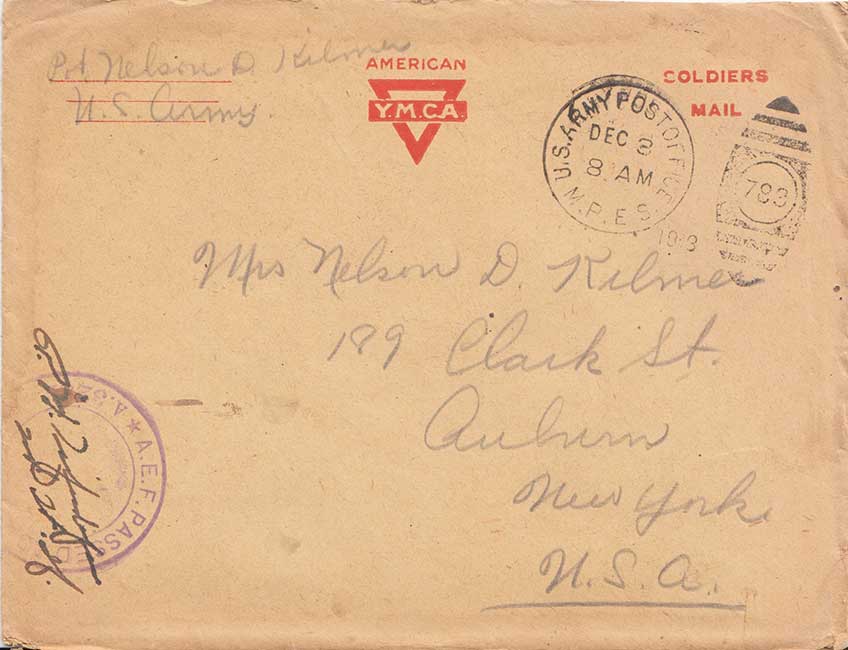 Pvt. Nelson D. Kilmer
U.S. Army.
AMERICAN
Y.M.C.A.
SOLDIERS
MAIL
U.S. ARMY POST OFFICE
DEC 3
8 AM
M.P.E.S.
783
Mrs Nelson D. Kilmer
189 Clark St.
Auburn
New York
U.S.A.
A.E.F. PASSED